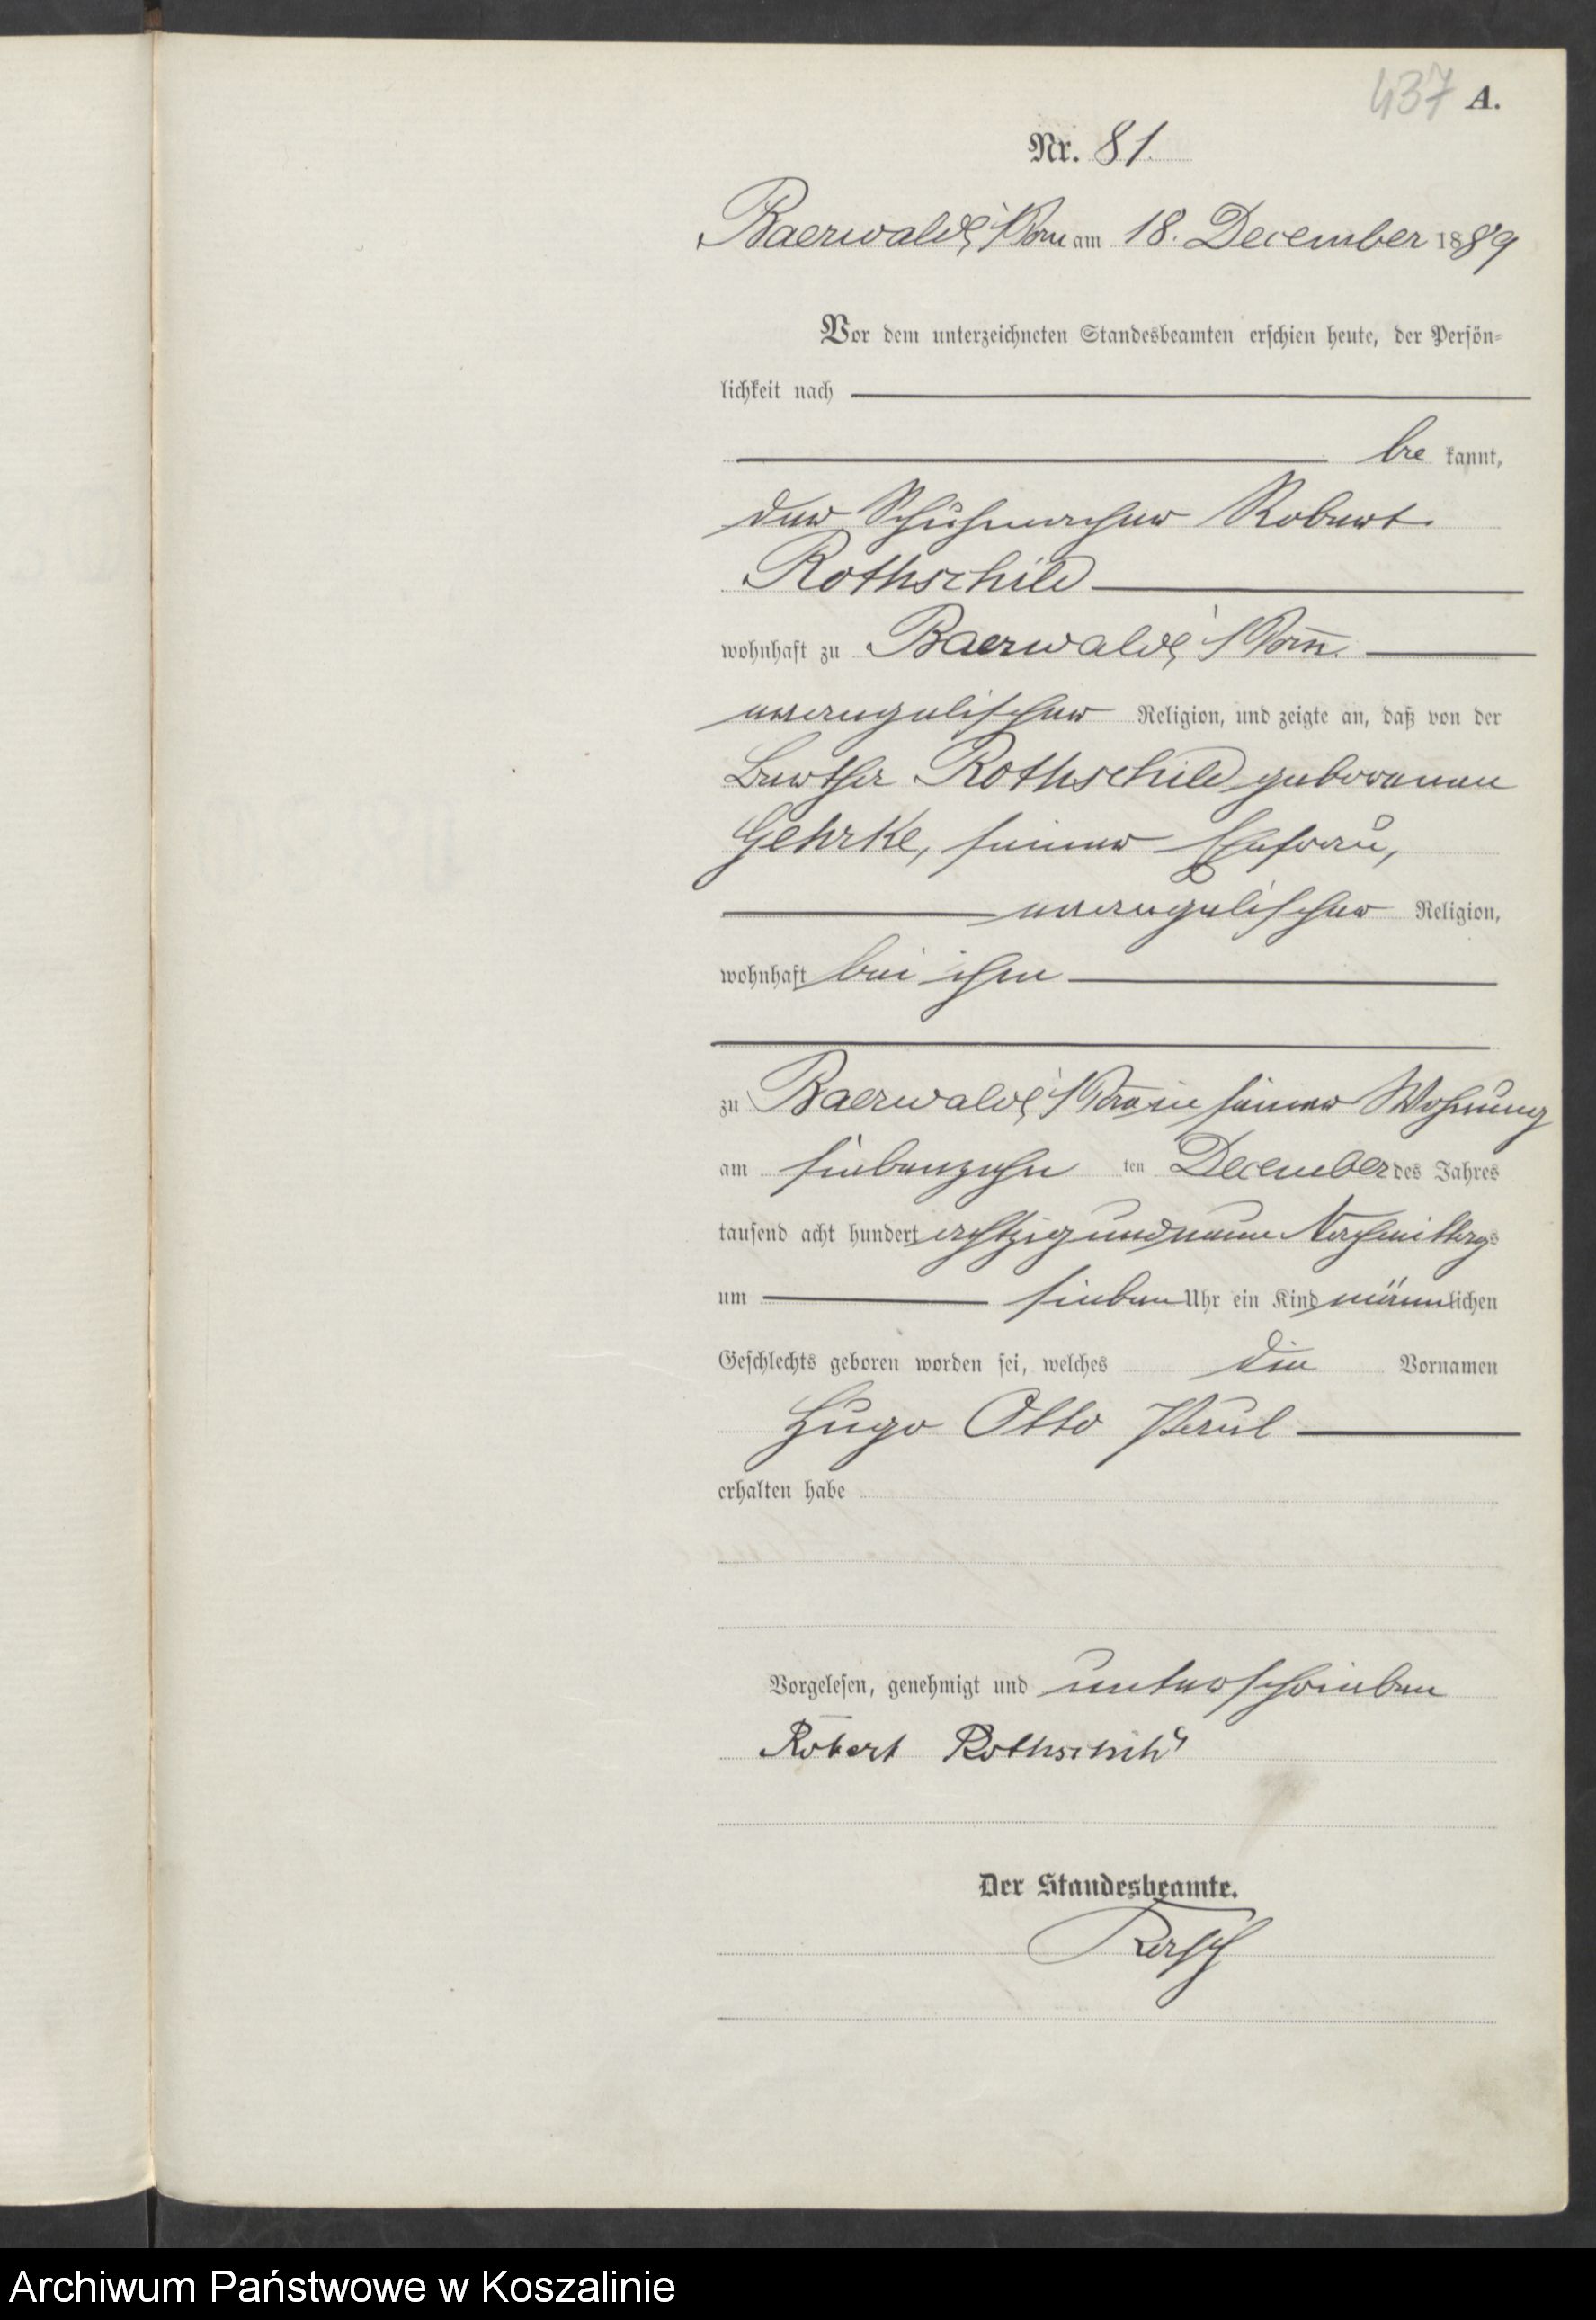 437 A.
Nr. 81.
Baerwalde i/Pom am 18. December 1889
Vor dem unterzeichneten Standesbeamten erschien heute, der Persön-
lichkeit nach
be kannt,
der Schuhmacher Robert
Rothschild
wohnhaft zu Baerwalde i/Pom.
evangelischer Religion, und zeigte an, daß von der
Bertha Rothschild geborenen
Gehrke, seiner Ehefrau,
evangelischer Religion,
wohnhaft bei ihm
zu Baerwalde i/Pom in seiner Wohnung
am siebenzehn ten December des Jahres
tausend acht hundert achtzig und neun Nachmittags
um sieben Uhr ein Kind männlichen
Geschlechts geboren worden sei, welches die Vornamen
Hugo Otto Paul
erhalten habe
Vorgelesen, genehmigt und unterschrieben
Robert Rothschild
Der Standesbeamte.
Archiwum Państwowe w Koszalinie